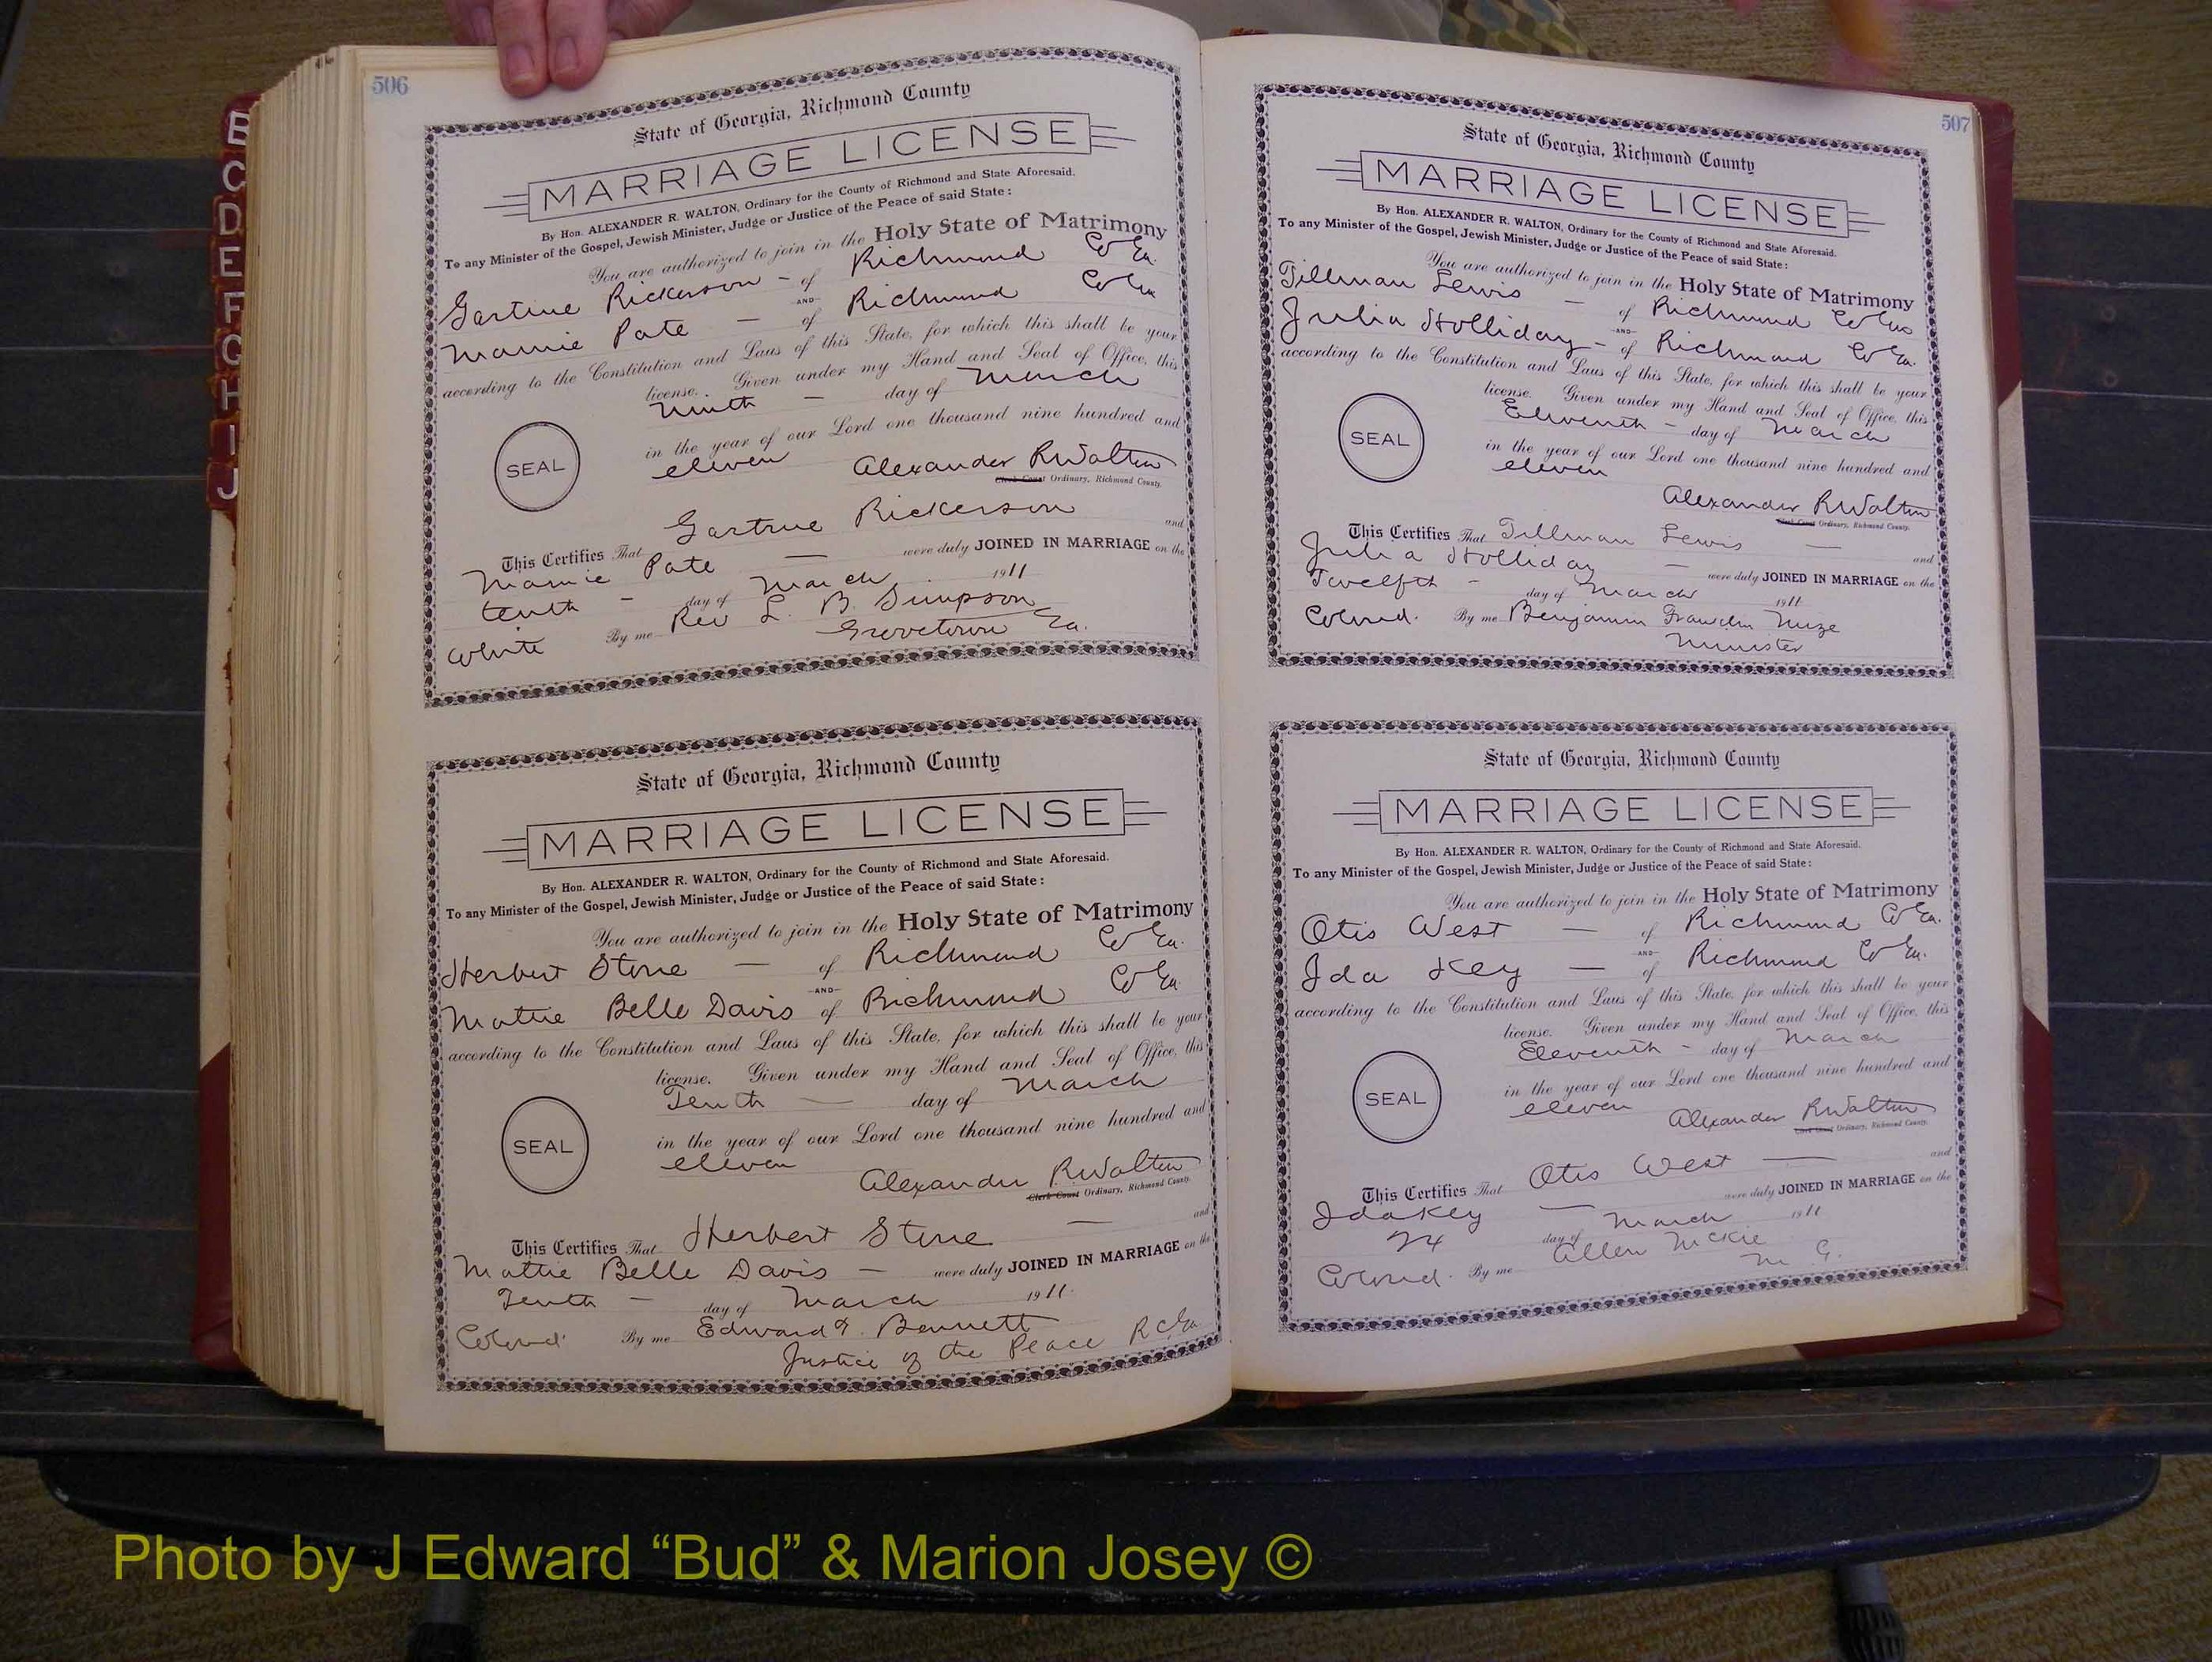 B
C
D
E
F
G
H
I
J
506
State of Georgia, Richmond County
MARRIAGE LICENSE
By Hon. ALEXANDER R. WALTON, Ordinary for the County of Richmond and State Aforesaid.
To any Minister of the Gospel, Jewish Minister, Judge or Justice of the Peace of said State:
You are authorized to join in the Holy State of Matrimony
Gartrue Rickerson - of Richmond Co Ga.
-AND-
Mamie Pate - of Richmond Co Ga
according to the Constitution and Laws of this State, for which this shall be your
license. Given under my Hand and Seal of Office, this
Ninth - day of March
in the year of our Lord one thousand nine hundred and
eleven Alexander R Walton
SEAL
Clerk Court Ordinary, Richmond County.
This Certifies That Gartrue Rickerson and
Mamie Pate - were duly JOINED IN MARRIAGE on the
tenth - day of March 1911
White By me Rev L. B. Simpson
Grovetown Ga.
State of Georgia, Richmond County
MARRIAGE LICENSE
By Hon. ALEXANDER R. WALTON, Ordinary for the County of Richmond and State Aforesaid.
To any Minister of the Gospel, Jewish Minister, Judge or Justice of the Peace of said State:
You are authorized to join in the Holy State of Matrimony
Herbert Stone - of Richmond Co Ga.
-AND-
Mattie Belle Davis of Richmond Co Ga
according to the Constitution and Laws of this State, for which this shall be your
license. Given under my Hand and Seal of Office, this
Tenth - day of March
in the year of our Lord one thousand nine hundred and
eleven Alexander R Walton
SEAL
Clerk Court Ordinary, Richmond County.
This Certifies That Herbert Stone - and
Mattie Belle Davis - were duly JOINED IN MARRIAGE on the
Tenth - day of March 1911.
Colored By me Edward J. Bennett
Justice of the Peace R C Ga
507
State of Georgia, Richmond County
MARRIAGE LICENSE
By Hon. ALEXANDER R. WALTON, Ordinary for the County of Richmond and State Aforesaid.
To any Minister of the Gospel, Jewish Minister, Judge or Justice of the Peace of said State:
You are authorized to join in the Holy State of Matrimony
Tillman Lewis - of Richmond Co Ga
-AND-
Julia Holliday - of Richmond Co Ga.
according to the Constitution and Laws of this State, for which this shall be your
license. Given under my Hand and Seal of Office, this
Eleventh - day of March
in the year of our Lord one thousand nine hundred and
eleven
SEAL
Alexander R Walton
Clerk Court Ordinary, Richmond County.
This Certifies That Tillman Lewis - and
Julia Holliday - were duly JOINED IN MARRIAGE on the
Twelfth - day of March 1911
Colored. By me Benjamin Mize
Minister
State of Georgia, Richmond County
MARRIAGE LICENSE
By Hon. ALEXANDER R. WALTON, Ordinary for the County of Richmond and State Aforesaid.
To any Minister of the Gospel, Jewish Minister, Judge or Justice of the Peace of said State:
You are authorized to join in the Holy State of Matrimony
Otis West - of Richmond Co Ga.
-AND-
Ida Key - of Richmond Co Ga.
according to the Constitution and Laws of this State, for which this shall be your
license. Given under my Hand and Seal of Office, this
Eleventh - day of March
in the year of our Lord one thousand nine hundred and
eleven Alexander R Walton
SEAL
Clerk Court Ordinary, Richmond County.
This Certifies That Otis West - and
Ida Key - were duly JOINED IN MARRIAGE on the
day of March 1911
Colored. By me Allen McKie
M. G.
Photo by J Edward “Bud” & Marion Josey ©